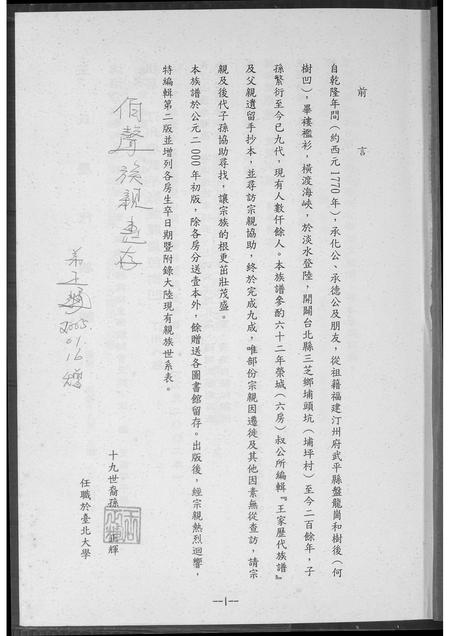 前言
自乾隆年間（約西元1770年），承化公、承德公及朋友，從祖籍福建汀州府武平縣盤龍崗和樹後（何
樹凹），畢褸襤衫，橫渡海峽，於淡水登陸，開闢台北縣三芝鄉埔頭坑（埔坪村）至今二百餘年，子
孫繁衍至今已九代，現有人數仟餘人。本族譜參酌六十二年榮城（六房）叔公所編輯『王家歷代族譜』
及父親遺留手抄本，並尋訪宗親協助，終於完成九成，唯部份宗親因遷徙及其他因素無從查訪，請宗
親及後代子孫協助尋找，讓宗族的根更茁壯茂盛。
本族譜於公元二000年初版，除各房分送壹本外，餘贈送各圖書館留存。出版後，經宗親熱烈迴響，
特編輯第二版並增列各房生卒日期暨附錄大陸現有親族世系表。
十九世裔孫 輝
任職於臺北大學
伯聲族親惠存
弟
2005.
01.
16
贈
--1--